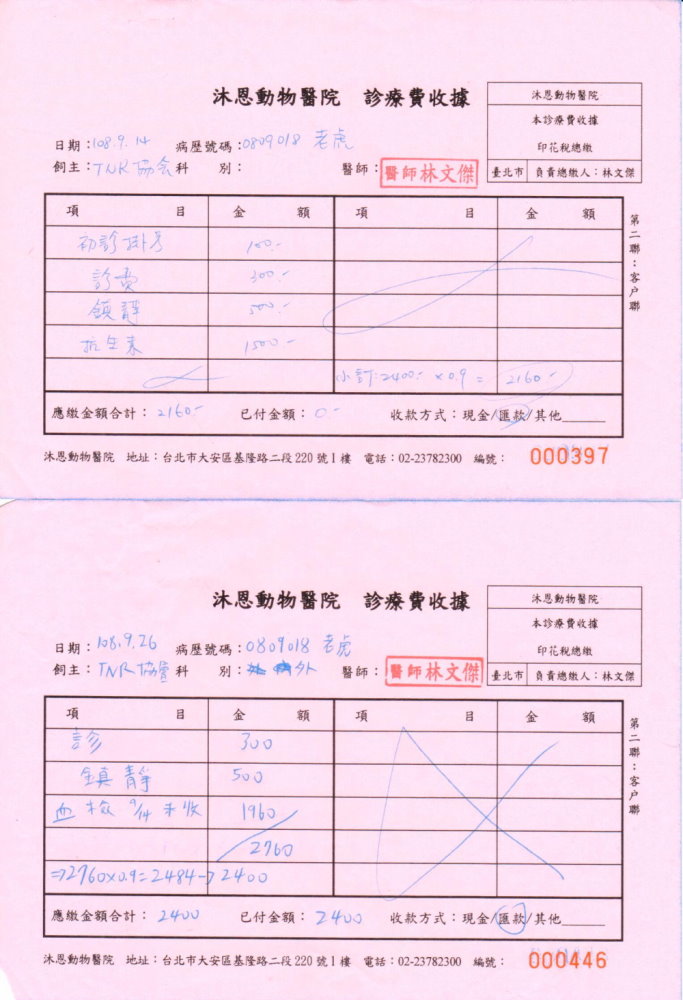 沐恩動物醫院 診療費收據
沐恩動物醫院
本診療費收據
印花稅總繳
臺北市 負責總繳人：林文傑
日期：108.9.14 病歷號碼：0809018 老虎
飼主：TNR協会 科 別： 醫師：醫師林文傑
項 目 金 額 項 目 金 額
初診掛号 100.-
診費 300.-
鎮靜 500.-
抗生素 1500.-
小計：2400.- ×0.9 = 2160.-
應繳金額合計：2160.- 已付金額：0.- 收款方式：現金/匯款/其他______
第二聯：客户聯
沐恩動物醫院 地址：台北市大安區基隆路二段220號1樓 電話：02-23782300 編號： 000397
沐恩動物醫院 診療費收據
沐恩動物醫院
本診療費收據
印花稅總繳
臺北市 負責總繳人：林文傑
日期：108.9.26 病歷號碼：0809018 老虎
飼主：TNR協會 科 別：外 醫師：醫師林文傑
項 目 金 額 項 目 金 額
診 300
鎮靜 500
血檢 9/14 未收 1960
2760
⇒2760×0.9=2484→2400
應繳金額合計：2400 已付金額：2400 收款方式：現金/匯款/其他______
第二聯：客户聯
沐恩動物醫院 地址：台北市大安區基隆路二段220號1樓 電話：02-23782300 編號： 000446